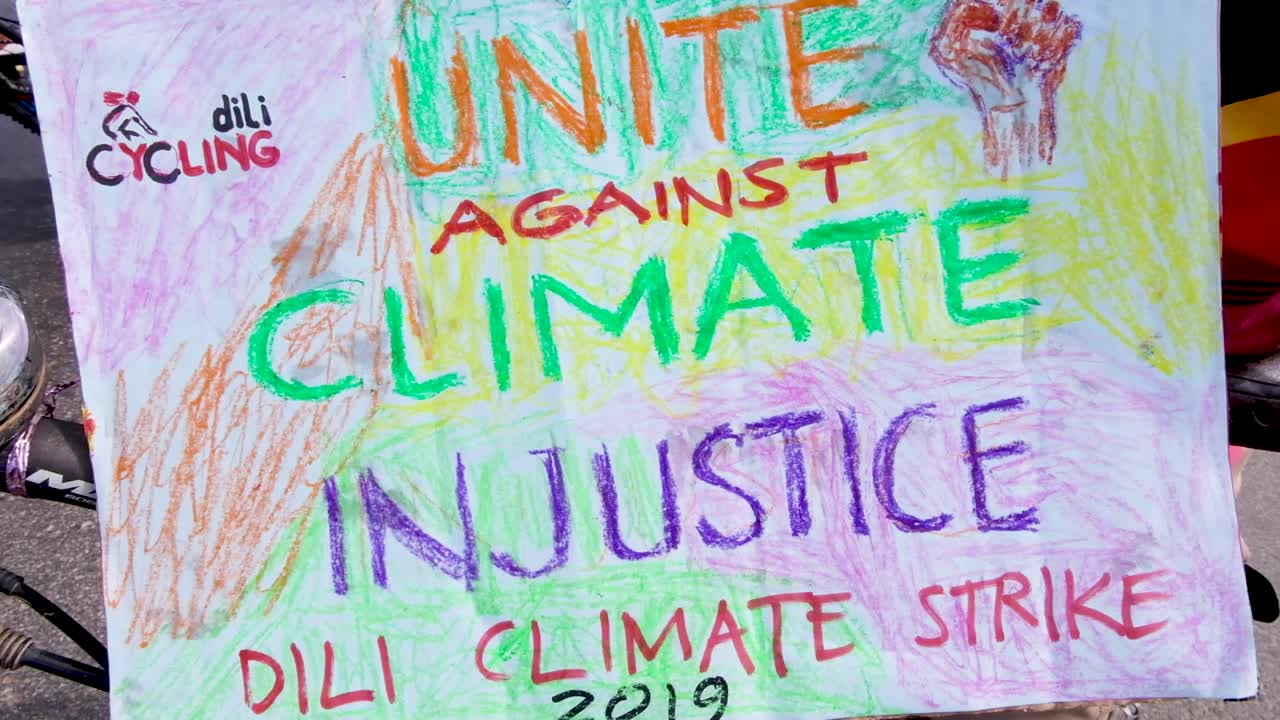 UNITE
dili
CYCLING
AGAINST
CLIMATE
INJUSTICE
DILI CLIMATE STRIKE
2019